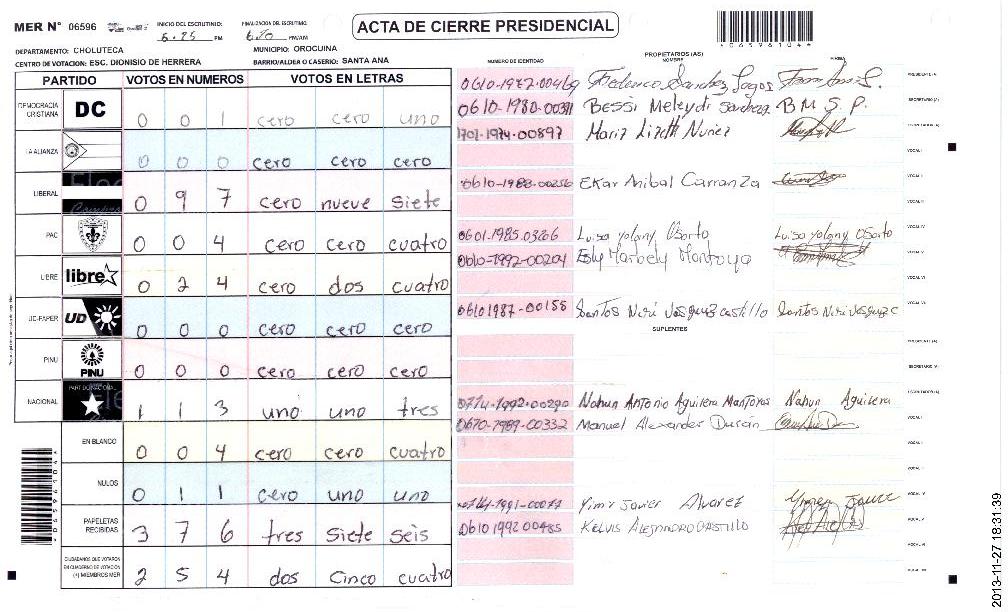 MER N° 06596 INICIO DEL ESCRUTINIO: 6:25 PM FINALIZACION DEL ESCRUTINIO: PM/AM ACTA DE CIERRE PRESIDENCIAL
DEPARTAMENTO: CHOLUTECA MUNICIPIO: OROCUINA
CENTRO DE VOTACION: ESC. DIONISIO DE HERRERA BARRIO/ALDEA O CASERIO: SANTA ANA
PARTIDO VOTOS EN NUMEROS VOTOS EN LETRAS
DEMOCRACIA CRISTIANA DC 0 0 1 cero cero uno
LA ALIANZA 0 0 0 cero cero cero
LIBERAL 0 9 7 cero nueve siete
PAC 0 0 4 cero cero cuatro
LIBRE libre 0 2 4 cero dos cuatro
UD-FAPER UD 0 0 0 cero cero cero
PINU PINU 0 0 0 cero cero cero
NACIONAL PARTIDO NACIONAL 1 1 3 uno uno tres
EN BLANCO 0 0 4 cero cero cuatro
NULOS 0 1 1 cero uno uno
PAPELETAS RECIBIDAS 3 7 6 tres siete seis
CIUDADANOS QUE VOTARON EN CUADERNO DE VOTACION (+) MIEMBROS MER 2 5 4 dos cinco cuatro
NUMERO DE IDENTIDAD PROPIETARIOS (AS) NOMBRE FIRMA
0610-1972-00469 Federico Sanchez Lagos PRESIDENTE (A)
0610-1980-00391 Bessi Meleydi Sanchez B M S P. SECRETARIO (A)
1701-1974-00897 Mariz Lizeth Nuñez
VOCAL I
0610-1988-00256 Ekar Anibal Carranza VOCAL II
VOCAL III
0601-1985-03266 Luisa Yolany Osorto Luisa Yolany Osorto VOCAL IV
0610-1992-00204 Esly Marbely Montoya VOCAL V
VOCAL VI
06101987-00158 Santos Neri Vasquez Castillo Santos Neri Vasquez C VOCAL VII
SUPLENTES
PRESIDENTE (A)
SECRETARIO (A)
0714-1992-00290 Nahun Antonio Aguilera Nahun Aguilera
0610-1989-00332 Manuel Alexander Duran VOCAL I
VOCAL II
0714-1991-00077 Yimi Javier Alvarez
0610 1992 00485 KELVIS ALEJANDRO CASTILLO
2013-11-27 18:31:39